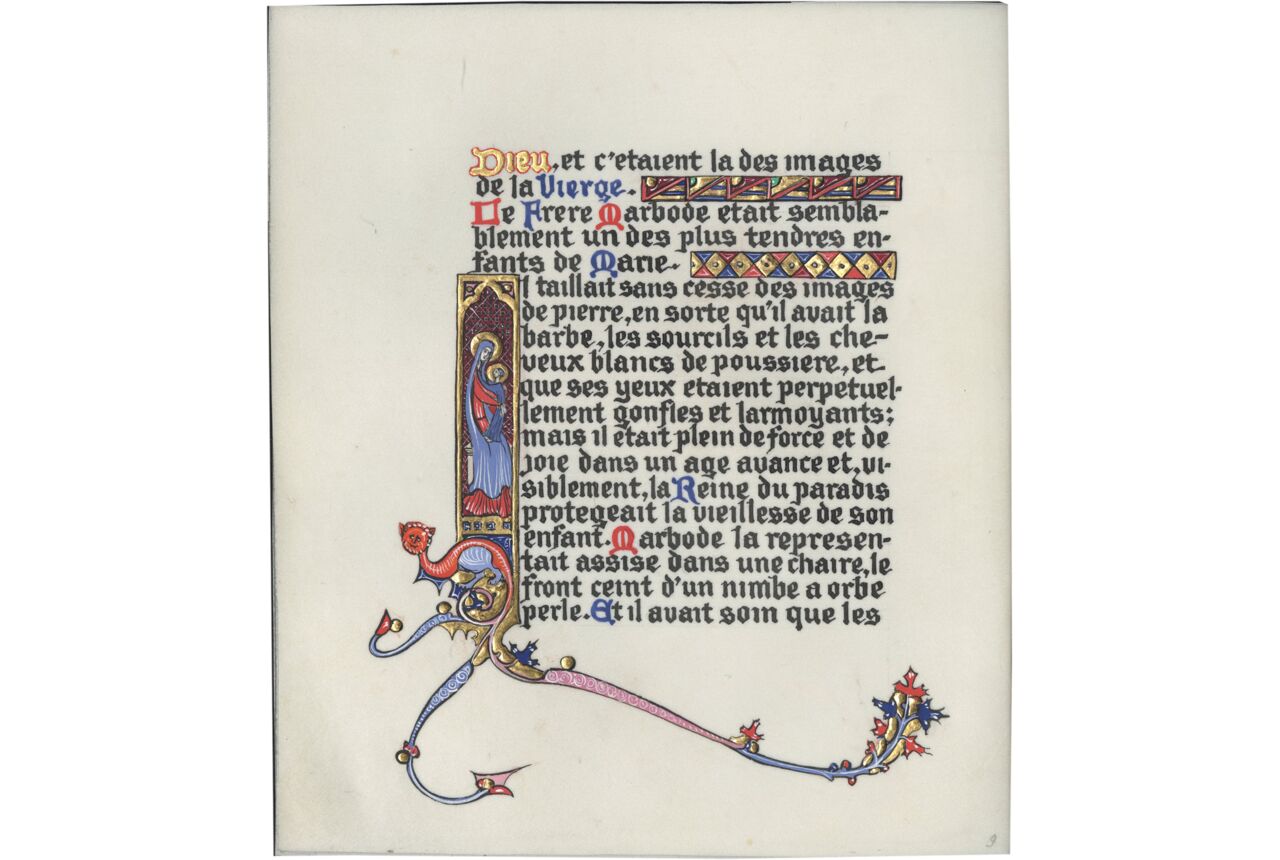 Dieu, et c'etaient la des images
de la Vierge.
Le Frere Marbode etait sembla-
blement un des plus tendres en-
fants de Marie.
Il taillait sans cesse des images
de pierre, en sorte qu'il avait la
barbe, les sourcils et les che-
veux blancs de poussiere, et
que ses yeux etaient perpetuel-
lement gonfles et larmoyants;
mais il était plein de force et de
joie dans un age avance et, vi-
siblement, la Reine du paradis
protegeait la vieillesse de son
enfant. Marbode la represen-
tait assise dans une chaire, le
front ceint d'un nimbe a orbe
perle. Et il avait soin que les
9